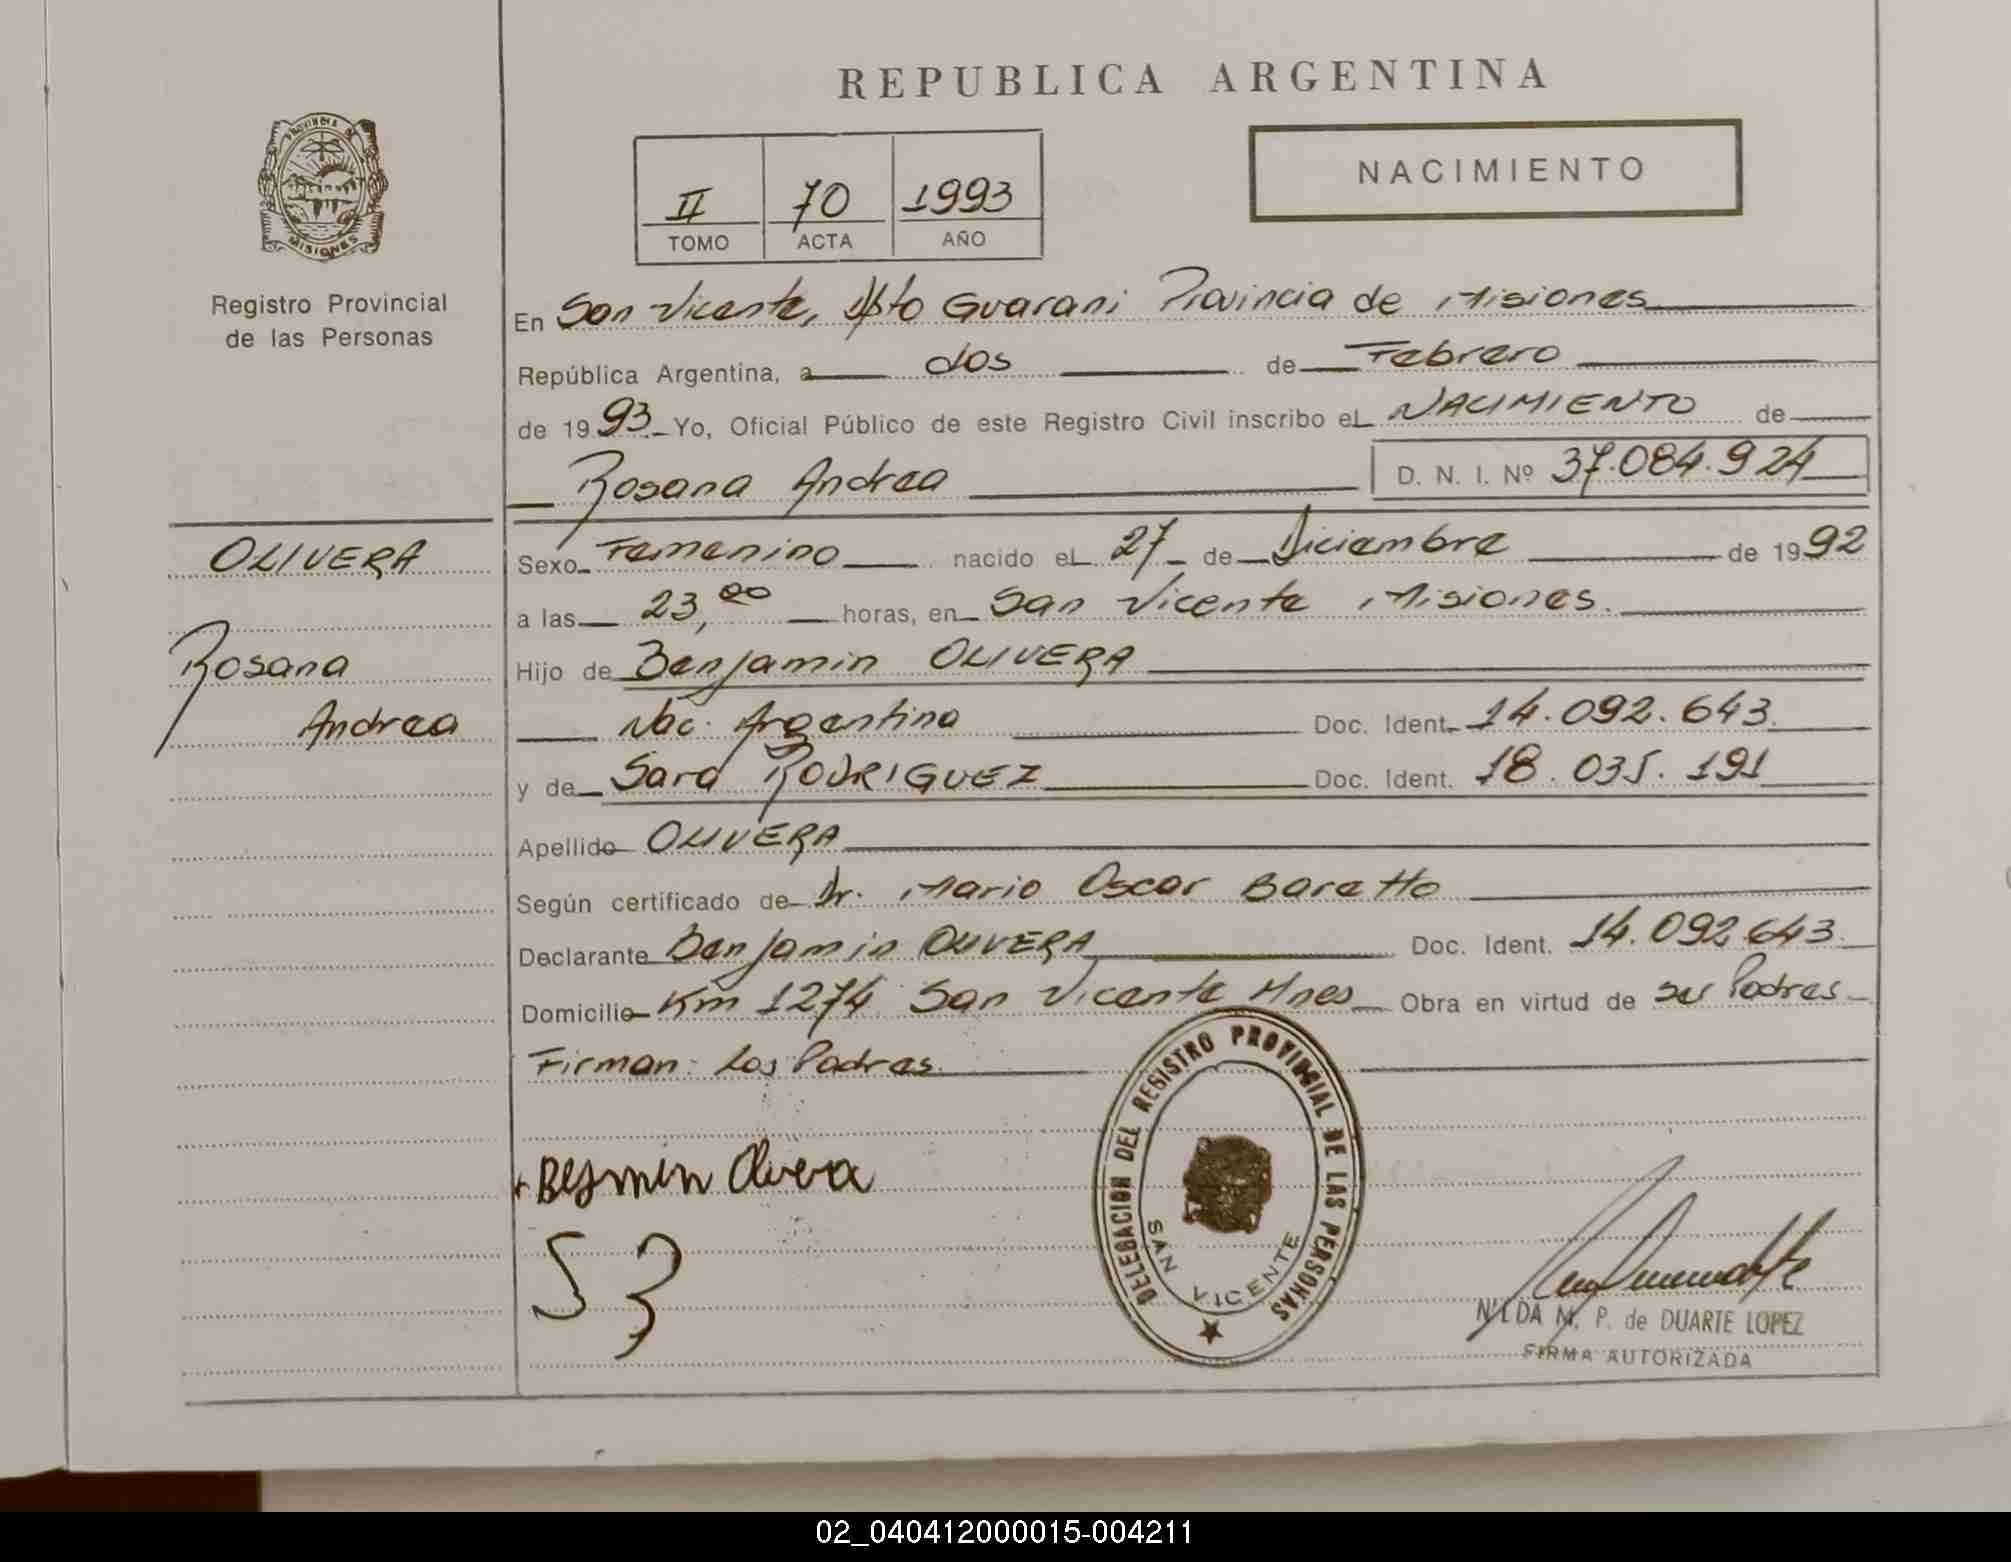 REPUBLICA ARGENTINA
PROVINCIA DE MISIONES
Registro Provincial
de las Personas
II 70 1993
TOMO ACTA AÑO
NACIMIENTO
En San Vicente, Dpto Guarani Provincia de Misiones
República Argentina, a dos de Febrero
de 1993 Yo, Oficial Público de este Registro Civil inscribo eL NACIMIENTO de
Rosana Andrea D. N. I. Nº 37.084.924
OLIVERA
Rosana
Andrea
Sexo Femenino nacido eL 27 de Diciembre de 1992
a las 23,00 horas, en San Vicente Misiones.
Hijo de Benjamin OLIVERA
Nac. Argentina Doc. Ident. 14.092.643
y de Sara RODRIGUEZ Doc. Ident. 18.035.191
Apellido OLIVERA
Según certificado de Dr. Mario Oscar Baretto
Declarante Benjamin OLIVERA Doc. Ident. 14.092.643
Domicilio Km 1274 San Vicente Mnes Obra en virtud de ser Padres
Firman: Los Padres
DELEGACION DEL REGISTRO PROVINCIAL DE LAS PERSONAS
SAN VICENTE
+ Bejmin Olivera
S R
NILDA M. P. de DUARTE LOPEZ
FIRMA AUTORIZADA
02_040412000015-004211